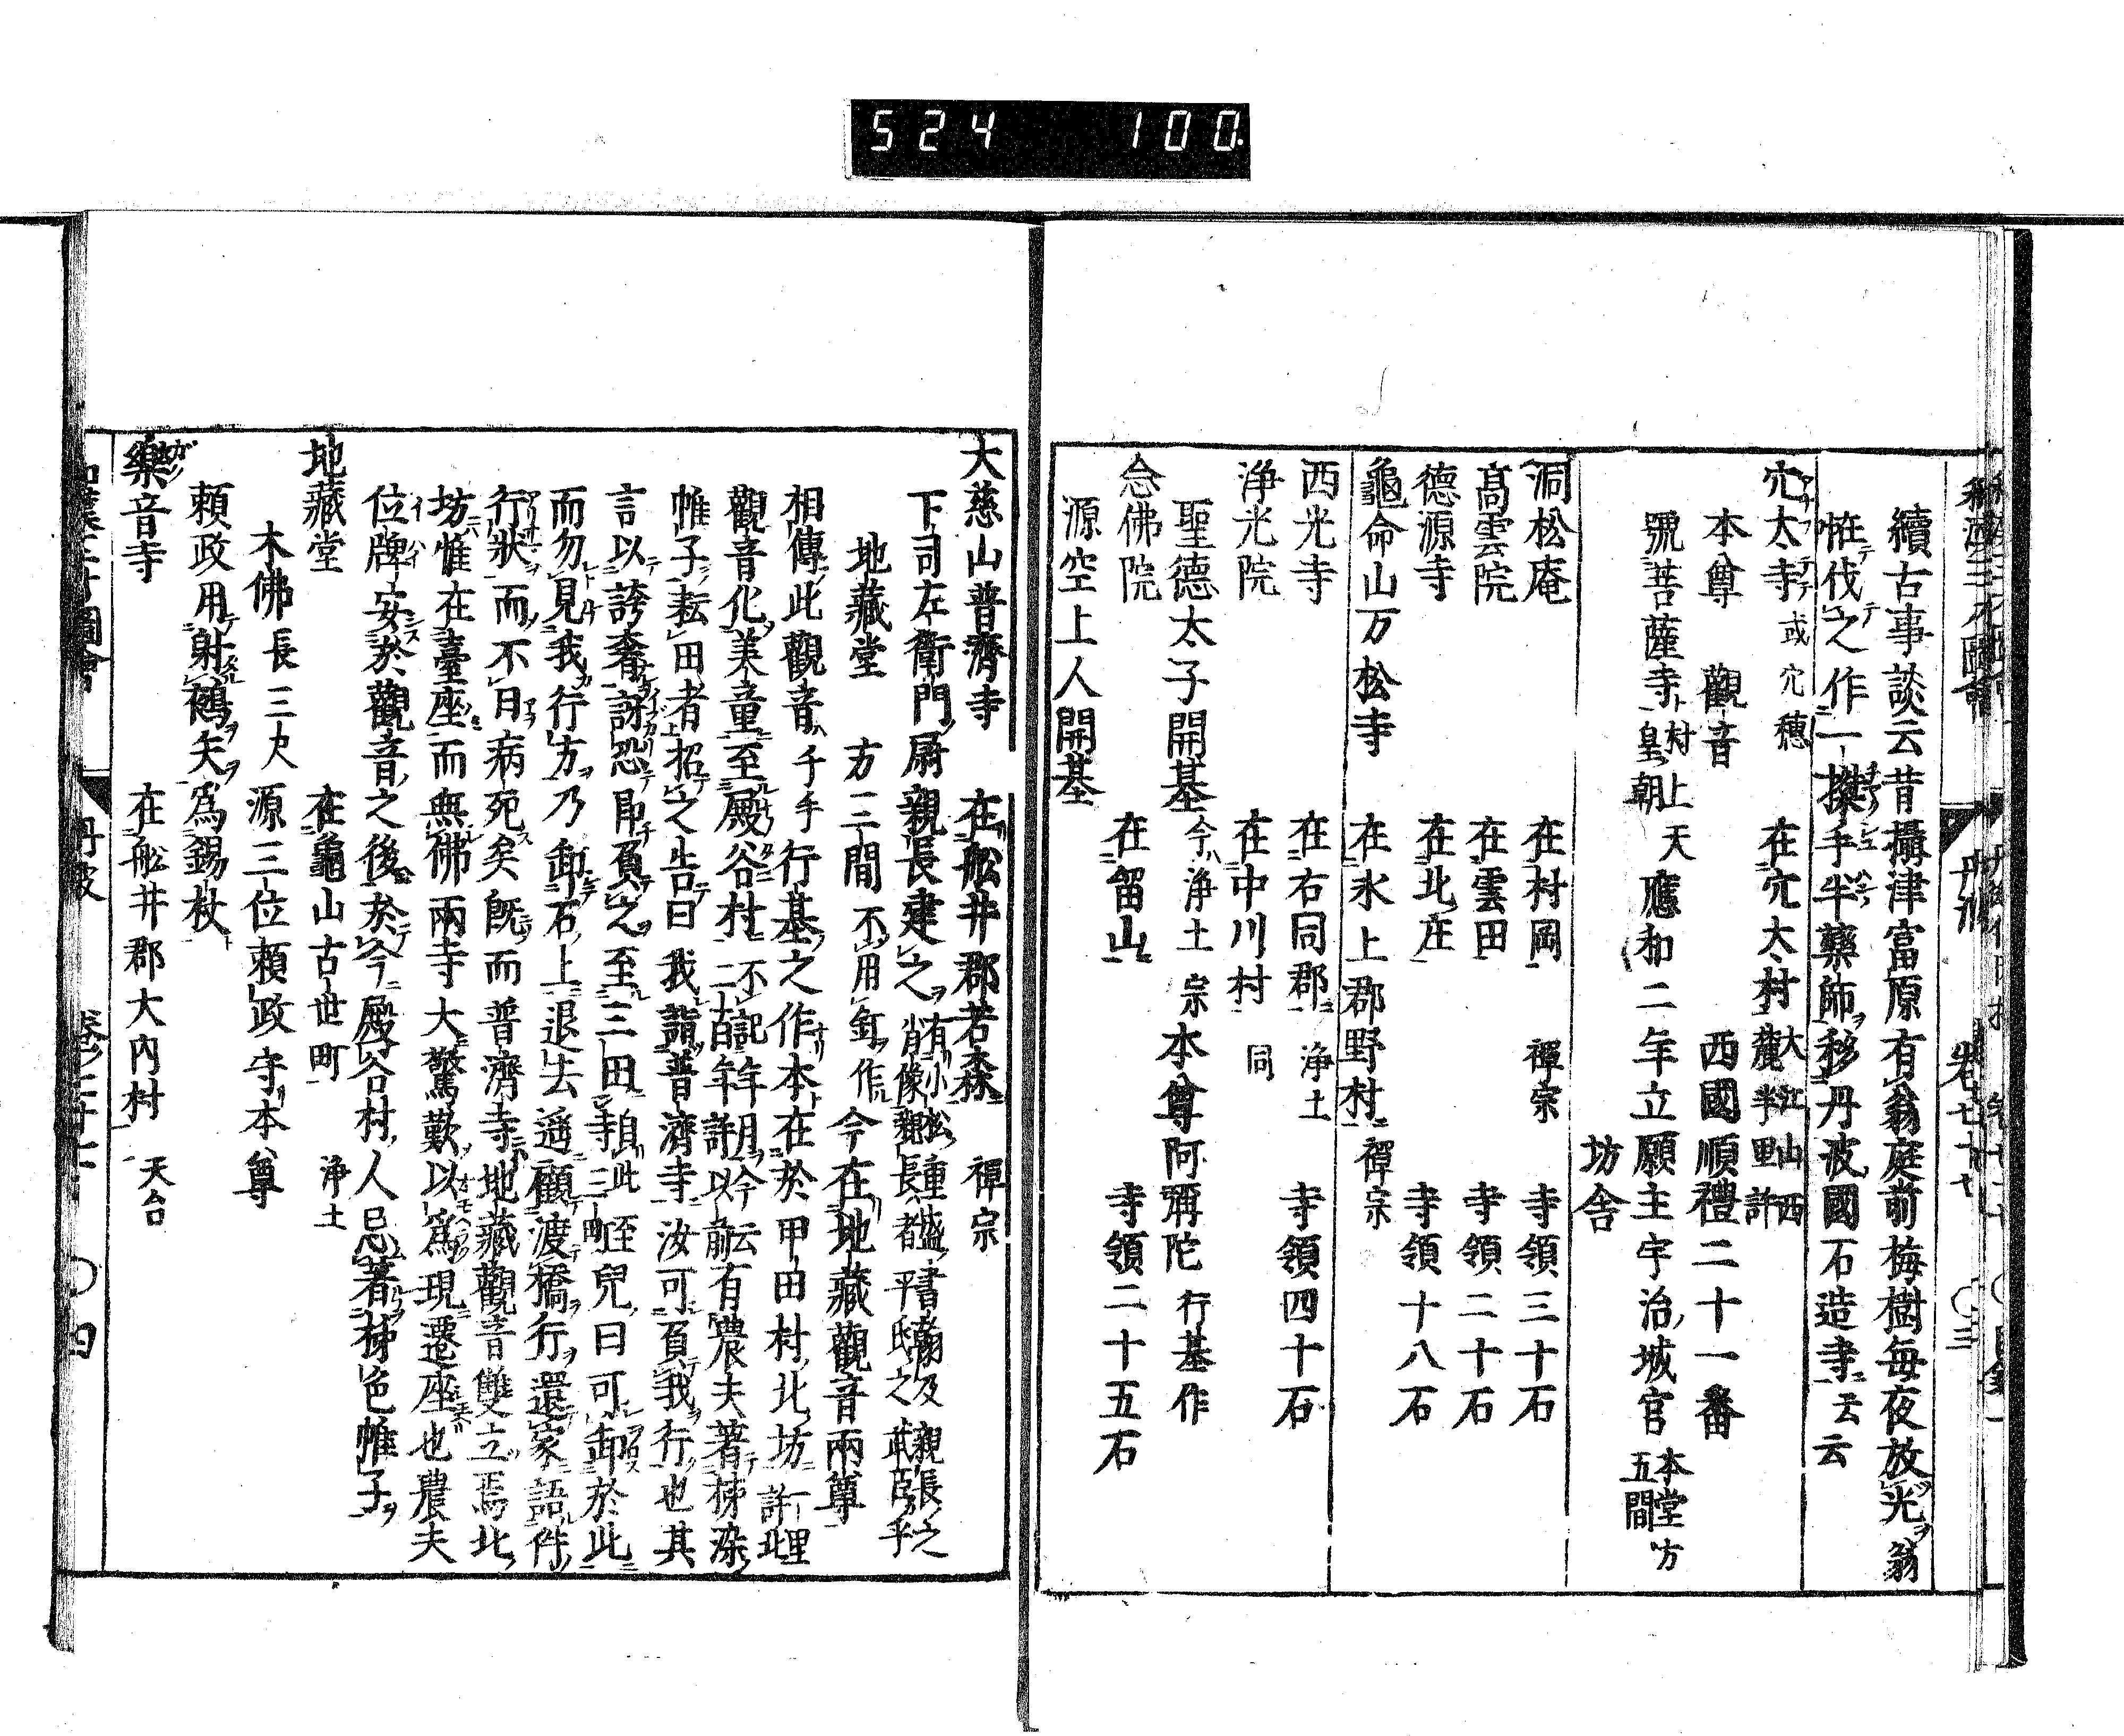 524 100.
續古事談云昔攝津富原有翁庭前梅樹毎夜放光翁
恠伐之作一搩手半藥師移丹波國石造寺云云
穴太寺 或穴穂 在穴太村 大江山西麓半里許
本尊 觀音 西國順禮二十一番
號菩薩寺 村上天皇朝 應和二年立願主宇治城官 本堂方五間
坊舎
洞松庵 在村岡 禪宗 寺領三十石
髙雲院 在雲田 寺領二十石
德源寺 在北庄 寺領十八石
龜命山万松寺 在氷上郡野村 禪宗
西光寺 在右同郡 浄土 寺領四十石
浄光院 在中川村 同
聖德太子開基 今浄土宗 本尊阿彌陀 行基作
念佛院 在留山 寺領二十五石
源空上人開基
大慈山普濟寺 在舩井郡若森 禪宗
下司左衛門尉親長建之 有小松重盛書翰及親長之肖像親長者平氏之武臣乎
地藏堂 方三間 不用釘作 今在地藏觀音兩尊
相傳此觀音千手行基之作本在於甲田村北坊 此里許
觀音化美童至殿谷村 不記年月今云二百年許以前 有農夫著柹澁
帷子耘田者招之告曰我詣普濟寺汝可負我行也其
言以誇奢訝恐即負之至三田 自此寺三町 咥兒曰可卸於此
而勿見我行方乃卸石上退去遥顧渡橋行還家語件
行狀而不日病死矣旣而普濟寺地藏觀音雙立焉北
坊惟在臺座而無佛兩寺大驚歎以爲現遷座也農夫
位牌安於觀音之後於今殿谷村人忌著柹色帷子
地藏堂 在龜山古世町 浄土
木佛 長三尺 源三位頼政守本尊
頼政用射鵺矢爲錫杖
樂音寺 在舩井郡大内村 天台
丹波